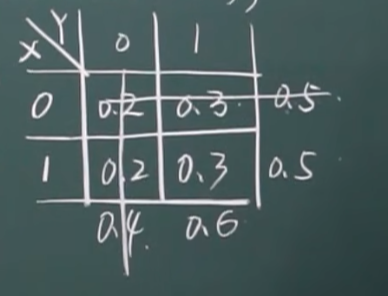 X Y 0 1
0 0.2 0.3 0.5
1 0.2 0.3 0.5
0.4 0.6